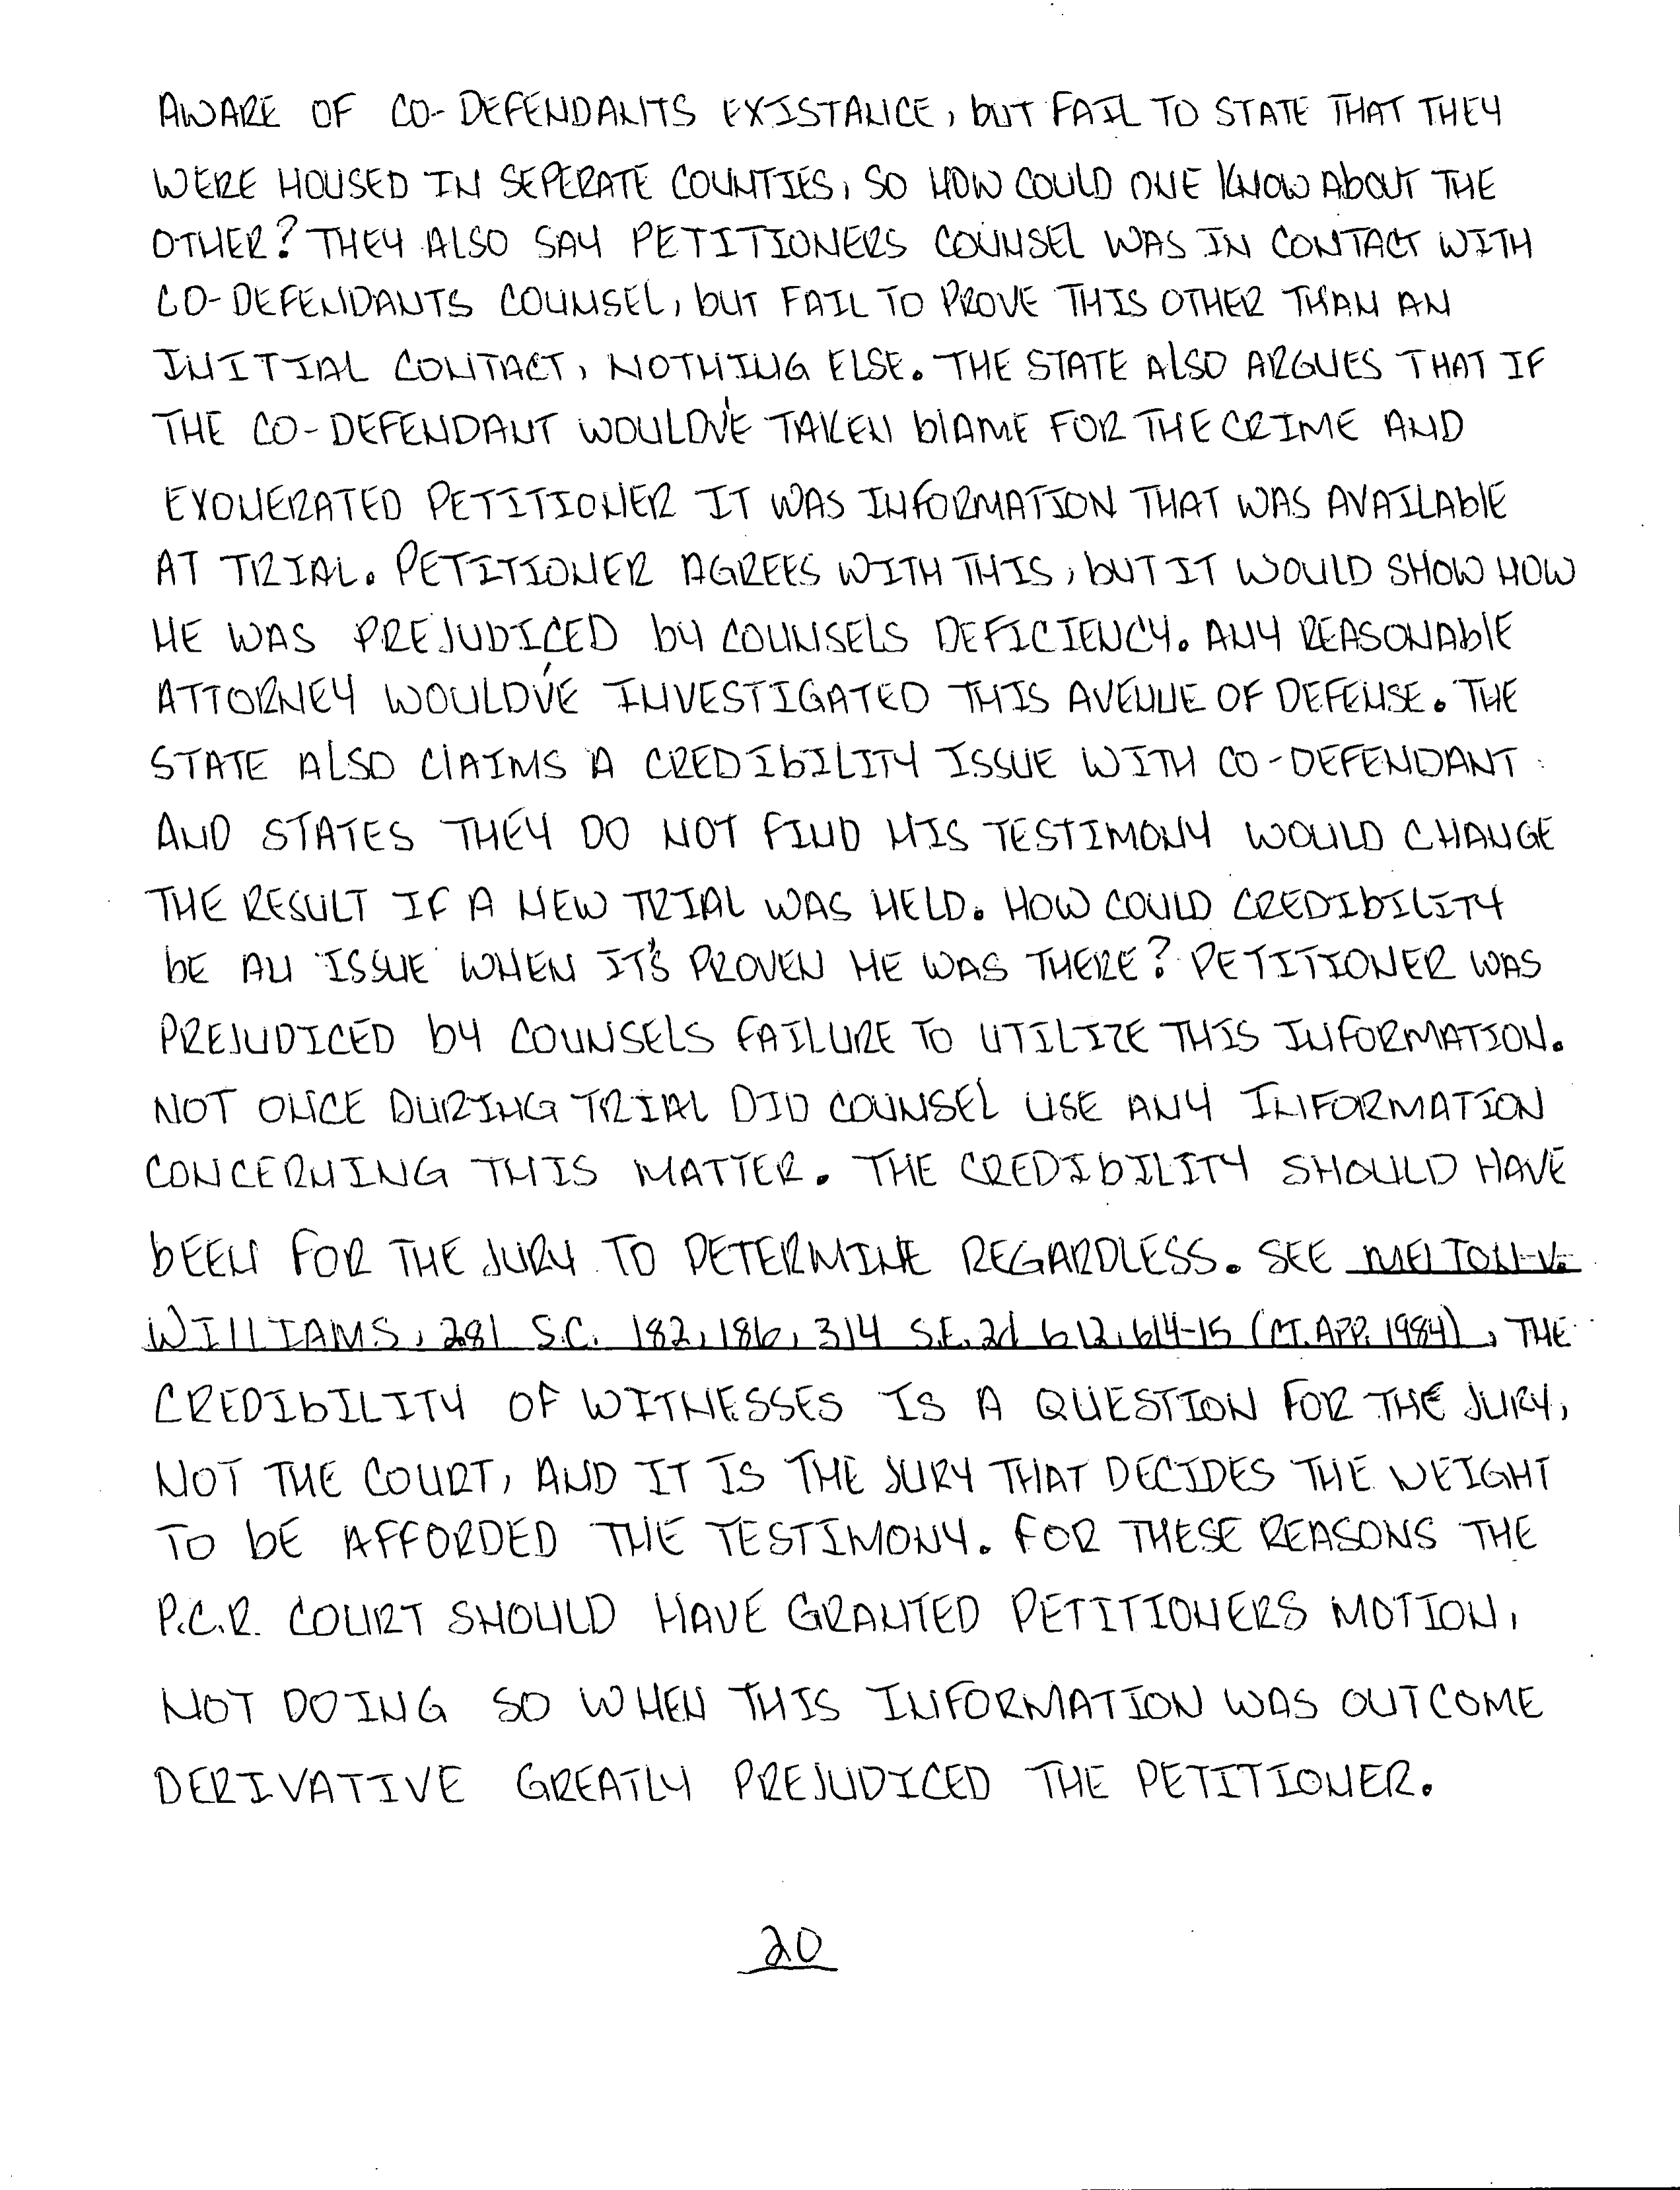 AWARE OF CO-DEFENDANTS EXISTANCE, but FAIL TO STATE THAT THEY
WERE HOUSED IN SEPERATE COUNTIES, SO HOW COULD ONE KNOW AbOUT THE
OTHER? THEY ALSO SAY PETITIONERS COUNSEL WAS IN CONTACT WITH
CO-DEFENDANTS COUNSEL, bUT FAIL TO PROVE THIS OTHER THAN AN
INITIAL CONTACT, NOTHING ELSE. THE STATE AlSO ARGUES THAT IF
THE CO-DEFENDANT WOULDV'E TAKEN blAME FOR THE CRIME AND
EXONERATED PETITIONER IT WAS INFORMATION THAT WAS AVAILAblE
AT TRIAL. PETITIONER AGREES WITH THIS, bUT IT WOULD SHOW HOW
HE WAS PREJUDICED bY COUNSELS DEFICIENCY. ANY REASONAblE
ATTORNEY WOULDV'E INVESTIGATED THIS AVENUE OF DEFENSE. THE
STATE AlSO ClAIMS A CREDIbILITY ISSUE WITH CO-DEFENDANT
AND STATES THEY DO NOT FIND HIS TESTIMONY WOULD CHANGE
THE RESULT IF A NEW TRIAL WAS HELD. HOW COULD CREDIbILITY
bE AN ISSUE WHEN IT'S PROVEN HE WAS THERE? PETITIONER WAS
PREJUDICED bY COUNSELS FAILURE TO UTILIZE THIS INFORMATION.
NOT ONCE DURING TRIAL DID COUNSEL USE ANY INFORMATION
CONCERNING THIS MATTER. THE CREDIbILITY SHOULD HAVE
bEEN FOR THE JURY TO DETERMINE REGARDLESS. SEE MELTON V.
WILLIAMS, 281 S.C. 182, 186, 314 S.E.2d 612, 614-15 (CT. APP. 1984), THE
CREDIbILITY OF WITNESSES IS A QUESTION FOR THE JURY,
NOT THE COURT, AND IT IS THE JURY THAT DECIDES THE WEIGHT
TO bE AFFORDED THE TESTIMONY. FOR THESE REASONS THE
P.C.R. COURT SHOULD HAVE GRANTED PETITIONERS MOTION,
NOT DOING SO WHEN THIS INFORMATION WAS OUTCOME
DERIVATIVE GREATLY PREJUDICED THE PETITIONER.
20